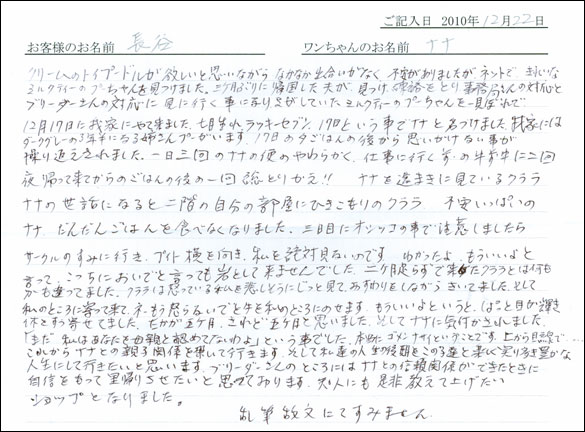 ご記入日 2010年12月22日
お客様のお名前 長谷 ワンちゃんのお名前 ナナ
クリームのトイプードルが欲しいと思いながら なかなか出合いがなく、不安がありましたがネットで、きれいな
ミルクティーのプーちゃんを見つけました。二ヶ月ぶりに帰国した夫が、見つけ、連絡をとり事務局さんの対応と
ブリーダーさんの対応に 見に行く事に
ミルクティーのプーちゃんを一見ぼれで
12月17日に我家にやって来ました。七月生れラッキーセブン、17日という事でナナと名づけました。我家には
ダークグレーの3年半になるお姉さんプーがいます。17日の夕ごはんの後から思いがけない事が
繰り返えされました。一日三回のナナの便のやわらかく、仕事に行く
夜帰って来てからのごはんの後の一回 認とりかえ!! ナナを遠まきに見ているクララ
ナナの世話になると二階の自分の部屋にひきこもりのクララ 不安いっぱいの
ナナ、だんだんごはんを食べなくなりました。三日目にオシッコの事で注意しましたら
サークルのすみに行き、プイト横を向き、私を絶対見ないのです。わかったよ、もういいよと
言って、こっちにおいでと言っても岩として来ませんでした。二ヶ月足らずで来たクララとは何も
かも違ってました。クララは怒っている私を悲しそうにじっと見て、おすわりをしながら きいてました。そして
私のところに寄って来て、ネ、もう怒らないでと手を私のところにのせます。もういいよというと、ぱっと目が輝き
体をすり寄せてました。たかが五ヶ月、されど五ヶ月と思いました。そしてナナに気付かされました。
「まだ 私はあなたを母親と認めてないわよ」という事でした。本当にゴメンナイということです。上から目線で…
これからナナとの親子関係を築いて行きます。そして私達の人生の後期をこの子達と楽しく実り多き豊かな
人生にして行きたいと思います。ブリーダーさんのところにはナナとの信頼関係ができたときに
自信をもって里帰りさせたいと思っております。知人にも是非教えて上げたい
ショップとなりました。
乱筆敬文にてすみません。